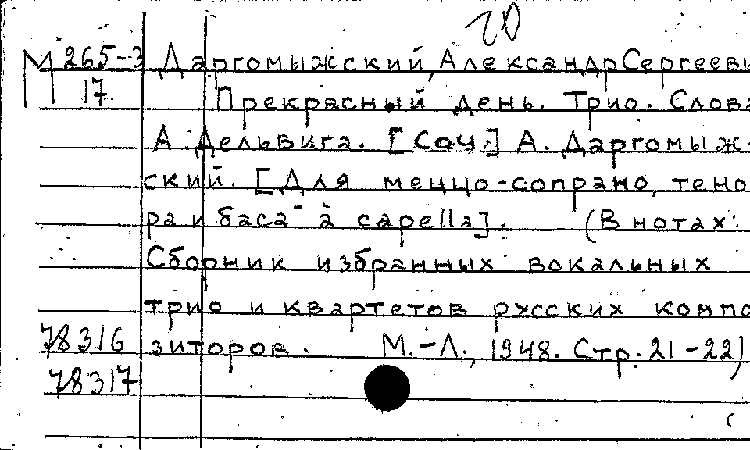 20
М 265-3 Даргомыжский, Александр Сергееви
17 Прекрасный день. Трио. Слова
А. Дельвига. [Соч.] А. Даргомыж-
ский. [Для меццо-сопрано, тено
ра и баса à capella]. (В нотах:
Сборник избранных вокальных
трио и квартетов русских компо
78316 зиторов. М.-Л., 1948. Стр. 21-22)
78317